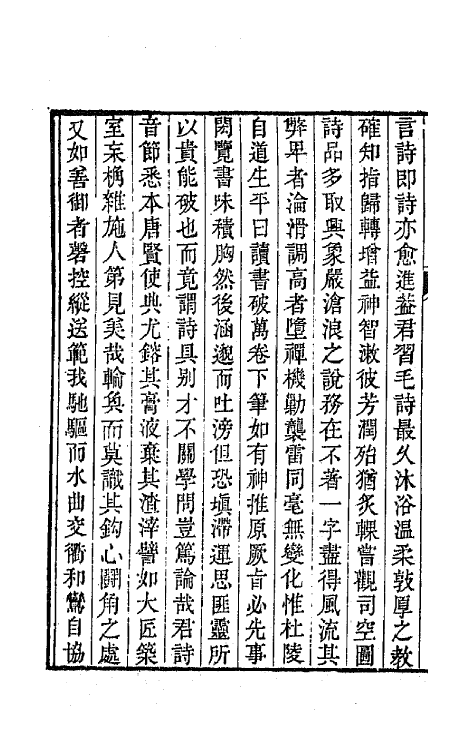 言詩即詩亦愈進益君習毛詩最久沐浴溫柔敦厚之教
確知指歸轉增益神智漱彼芳潤殆猶炙輠嘗觀司空圖
詩品多取興象嚴滄浪之說務在不著一字盡得風流其
弊卑者淪滑調高者墮禪機勦襲雷同毫無變化惟杜陵
自道生平曰讀書破萬卷下筆如有神推原厥旨必先事
閎覽書味積胸然後涵邈而吐滂但恐塡滯運思匪靈所
以貴能破也而竟謂詩具别才不關學問豈篤論哉君詩
音節悉本唐賢使典尤鎔其膏液棄其渣滓譬如大匠築
室杗桷雜施人第見美哉輪奐而莫識其鈎心鬭角之處
又如善御者罄控縱送範我馳驅而水曲交衢和鸞自協